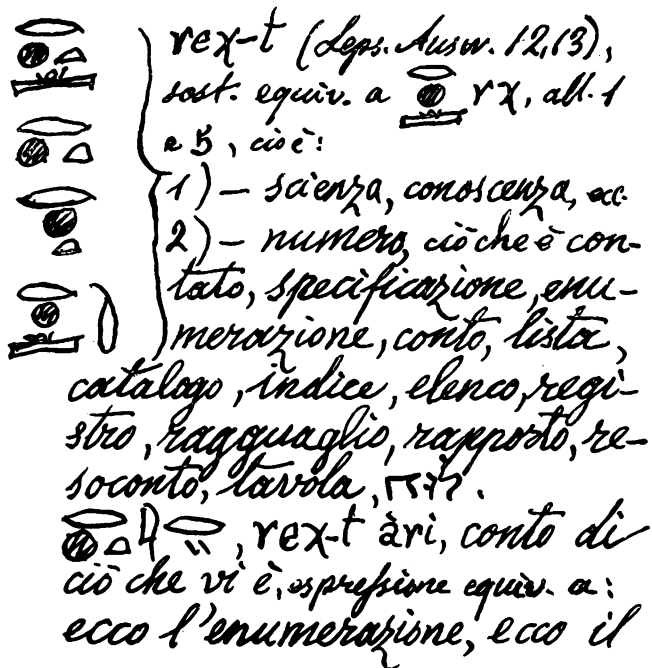 reχ-t (Leps. Ausw. 12,13),
sost. equiv. a rχ, all. 1
e 5, cioè:
1) – scienza, conoscenza, ecc.
2) – numero, ciò che è con-
tato, specificazione, enu-
merazione, conto, lista,
catalogo, indice, elenco, regi-
stro, ragguaglio, rapporto, re-
soconto, tavola,
reχ-t àri, conto di
ciò che vi è, espressione equiv. a:
ecco l'enumerazione, ecco il